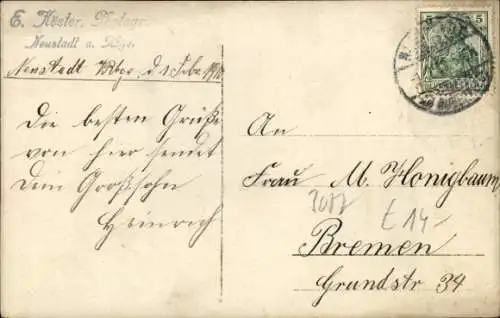 E. Köster, Photogr.
Neustadt a. Rbge.
Neustadt Rbge, d. 1. Febr. 1910
Die besten Grüße
von hier sendet
Dein Großsohn
Heinrich
5 5
An
Frau M. Honigbaum
Bremen
Grundstr 34
2087
E 14-